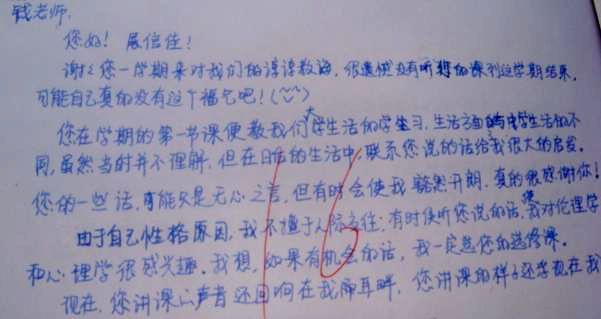 钱老师,
您好!展信佳!
谢谢您一学期来对我们的谆谆教诲,很遗憾没有听您的课到这学期结束,
可能自己真的没有这个福气吧!
您在学期的第一节课便教我们大学生活的学习、生活方面与中学生活的不
同,虽然当时并不理解,但在日后的生活中,联系您说的话给我很大的启发。
您的一些话,可能只是无心之言,但有时会使我豁然开朗,真的很感谢你!
由于自己性格原因,我不擅于人际交往,有时侯听您说的话,我对伦理学
和心理学很感兴趣。我想,如果有机会的话,我一定选您的选修课。
现在,您讲课的声音还回响在我耳畔,您讲课的样子还浮现在我